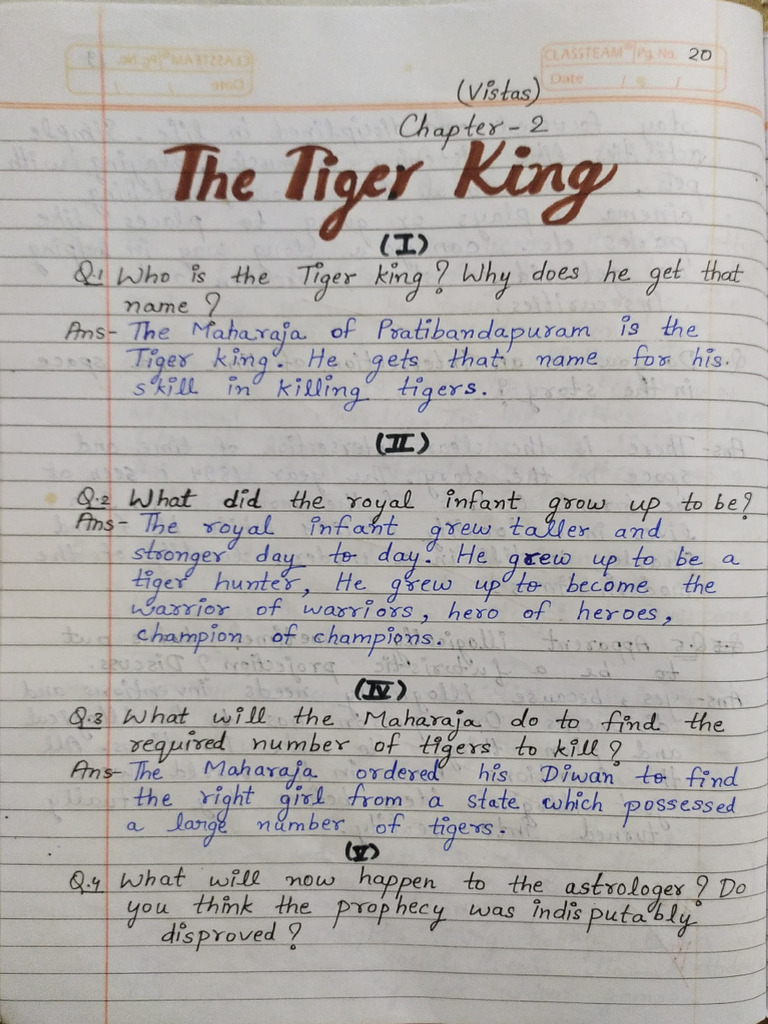 CLASSTEAM® Pg. No. 20
Date / /
(Vistas)
Chapter - 2
The Tiger King
(I)
Q.1 Who is the Tiger king? Why does he get that
name?
Ans- The Maharaja of Pratibandapuram is the
Tiger king. He gets that name for his.
skill in killing tigers.
(II)
Q.2 What did the royal infant grow up to be?
Ans- The royal infant grew taller and
stronger day to day. He grew up to be a
tiger hunter, He grew up to become the
warrior of warriors, hero of heroes,
champion of champions.
(IV)
Q.3 What will the Maharaja do to find the
required number of tigers to kill?
Ans- The Maharaja ordered his Diwan to find
the right girl from a state which possessed
a large number of tigers.
(V)
Q.4 What will now happen to the astrologer? Do
you think the prophecy was indisputably
disproved?